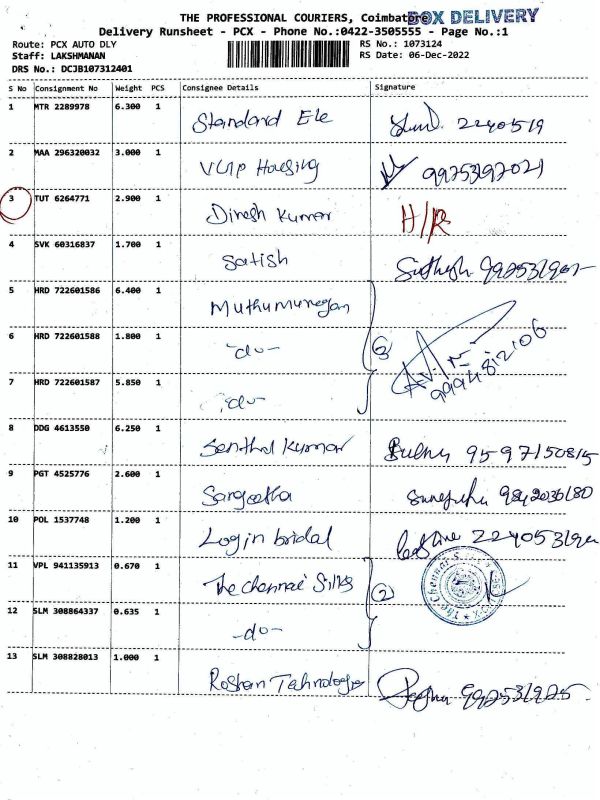 THE PROFESSIONAL COURIERS, Coimbatore BOX DELIVERY
Delivery Runsheet - PCX - Phone No.:0422-3505555 - Page No.:1
Route: PCX AUTO DLY RS No.: 1073124
Staff: LAKSHMANAN RS Date: 06-Dec-2022
DRS No.: DCJB107312401
S No Consignment No Weight PCS Consignee Details Signature
1 MTR 2289978 6.300 1 Standard Ele 2240519
2 MAA 296320032 3.000 1 Housing
3 TUT 6264771 2.900 1 Dinesh Kumar
4 SVK 60316837 1.700 1 Satish
5 HRD 722601586 6.400 1 Muthumurugan
6 HRD 722601588 1.800 1 -do- 3 9994812106
7 HRD 722601587 5.850 1 -do-
8 DDG 4613550 6.250 1 Senthil Kumar 9597150815
9 PGT 4525776 2.600 1 Sangeetha
10 POL 1537748 1.200 1 Login bridal
11 VPL 941135913 0.670 1 The Chennai Silks 2
12 SLM 308864337 0.635 1 -do-
13 SLM 308828013 1.000 1 Roshan